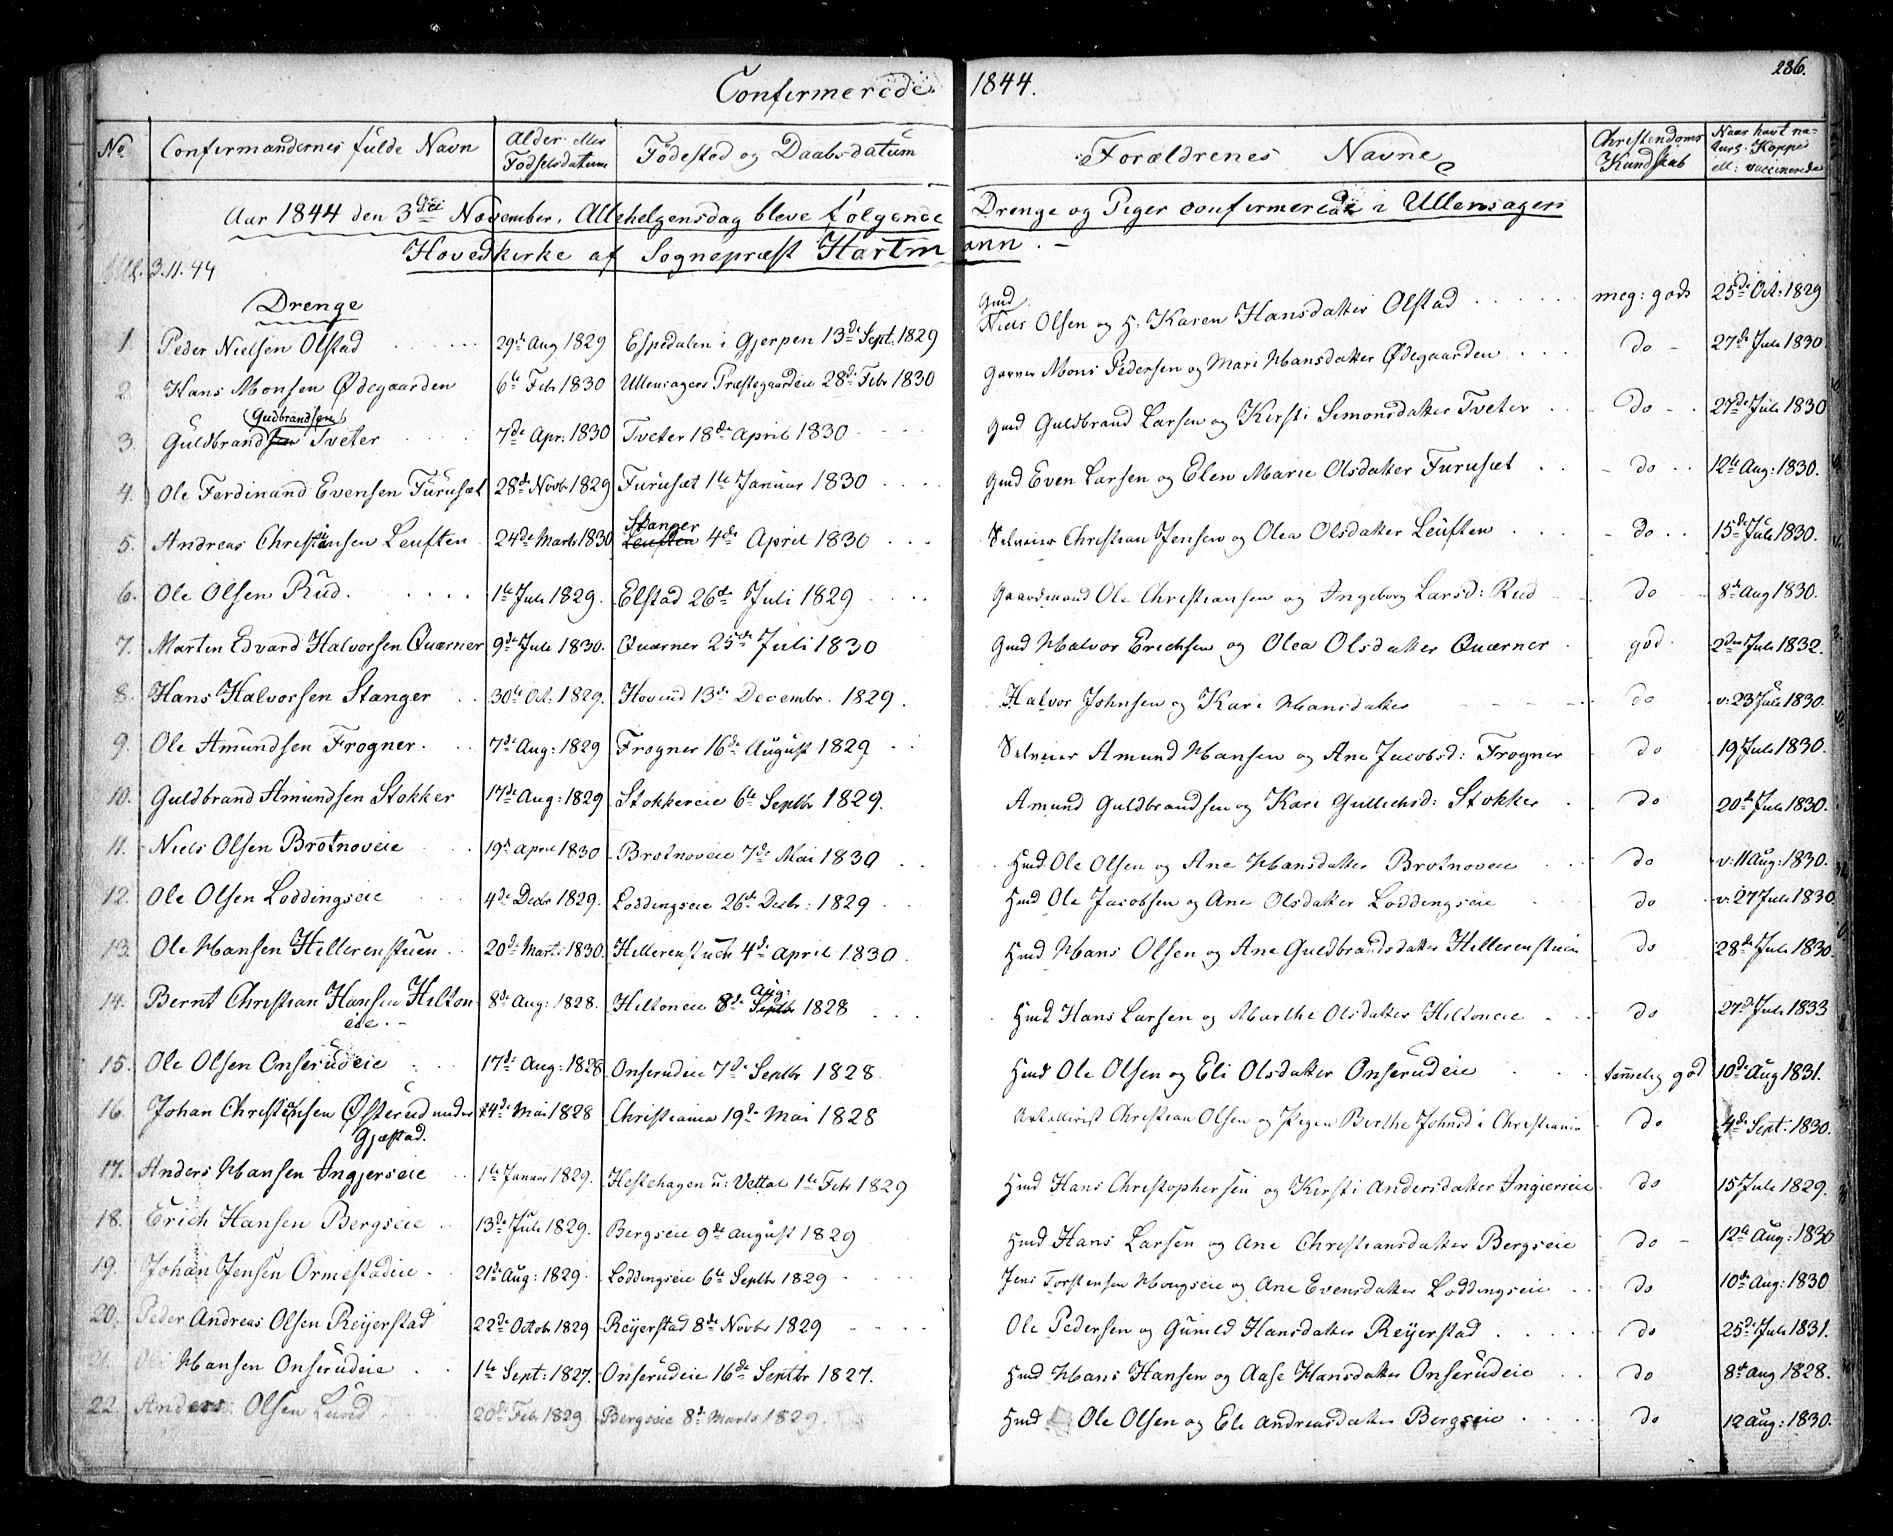 Confirmerede 1844. 286.
No Confirmandernes fulde Navn Alder eller Fødselsdatum Fødested og Daabsdatum Forældrenes Navne Christendoms Kundskab Naar havt naturl. Kopper ell: vaccinerede
Aar 1844 den 3die November, Allehelgensdag bleve følgende Drenge og Piger confirmerede i Ullensagers
Hovedkirke af Sognepræst Hartmann. –
3.11.44
Drenge
1. Peder Nielsen Olstad 29de Aug 1829 Espedalen i Gjerpen 13de Sept. 1829 Gmd Niels Olsen og H: Karen Hansdatter Olstad meg: gods 25de Oct: 1829
2. Hans Monsen Ødegaarden 6te Febr 1830 Ullensagers Præstegaardeie 28de Febr 1830 Mons Pedersen og Mari Hansdatter Ødegaarden do 27de Juli 1830
3. Guldbrand (Gudbrandsen) Tveter 7de Apr: 1830 Tveter 18de April 1830 Gmd Guldbrand Larsen og Kirsti Simonsdatter Tveter do 27de Juli 1830
4. Ole Ferdinand Evensen Furuset 28de Novbr 1829 Furuset 1te Januar 1830 Gmd Even Larsen og Elen Marie Olsdatter Furuset do 12te Aug: 1830.
5. Andreas Christiansen Leuften 24de Marts 1830 Stanger Leuften 4de April 1830 Selveier Christian Jensen og Olea Olsdatter Leuften do 15de Juli 1830.
6. Ole Olsen Rud. 1te Juli 1829. Elstad 26de Juli 1829 Gaardmand Ole Christiansen og Ingeborg Larsd: Rud do 8de Aug 1830.
7. Martin Edvard Halvorsen Quærner 9de Juli 1830. Quærner 25de Juli 1830 Gmd Halvor Erichsen og Olea Olsdatter Quærner god. 2den Juli 1832.
8. Hans Halvorsen Stanger 30te Oct: 1829. Hovind 13de Decembr. 1829. Halvor Johnsen og Kari Hansdatter do v: 23 Juli 1830.
9. Ole Amundsen Frogner. 7de Aug: 1829 Frogner 16de August 1829 Selveier Amund Hansen og Ane Jacobsd: Frogner do 19 Juli 1830.
10. Guldbrand Amundsen Stokker 17de Aug: 1829 Stokkereie 6te Septbr 1829. Amund Guldbrandsen og Kari Gullichsd: Stokker do 20de Juli 1830.
11. Niels Olsen Brotnoveie 19de April 1830 Brotnoveie 7de Mai 1830 Hmd: Ole Olsen og Ane Hansdatter Brotnoveie do v: 11 Aug: 1830.
12. Ole Olsen Loddingseie 4de Decbr 1829. Loddingseie 26de Decbr: 1829 Hmd Ole Jacobsen og Ane Olsdatter Loddingseie do v: 27 Juli 1830
13. Ole Hansen Hellerenstuen 20de Mart: 1830. Hellerenstuen 4de April 1830. Hmd Hans Olsen og Ane Guldbrandsdatter Hellerenstuen do 28de Juli 1830.
14. Bernt Christian Hansen Hiltoneie. – 8de Aug: 1828. Hiltoneie 8de Aug: Septbr 1828 Hmd. Hans Larsen og Marthe Olsdatter Hiltoneie do 27de Juli 1833
15. Ole Olsen Onserudeie 17de Aug: 1828 Onserudeie 7de Septbr 1828. Hmd Ole Olsen og Eli Olsdatter Onserudeie temmelig god 10de Aug 1831.
16. Johan Christiansen Østerud under Gjæstad. 4de Mai 1828 Christiania 19de Mai 1828 Artellerist Christian Olsen og Pigen Berthe Johnsd i Christiania do 4de Sept: 1830.
17. Anders Hansen Ingjerseie 1te Januar 1829. Hestehagen u: Vettal 1te Febr 1829 Hmd Hans Christophersen og Kirsti Andersdatter Ingierseie do 15 Juli 1829.
18. Erich Hansen Bergseie 13de Juli 1829. Bergseie 9de August 1829 Hmd Hans Larsen og Ane Christiansdatter Bergseie do 12te Aug: 1830
19. Johan Jensen Ormestadeie 21de Aug: 1829. Loddingseie 6te Septbr 1829 Jens Torstensen Hougseie og Ane Evensdatter Loddingseie do 10de Aug: 1830
20. Peder Andreas Olsen Reijerstad 22de Octobr 1829 Reijerstad 8de Novbr 1829 Ole Pedersen og Gunild Hansdatter Reijerstad do 25de Juli 1831.
21. Hansen Onserudeie 1te Sept: 1827. Onserudeie 16de Septbr 1827. Hmd Hans Hansen og Aase Hansdatter Onserudeie do 8de Aug 1828.
22. Anders Olsen Lund 20de Febr 1829. Bergseie 8de Marts 1829. Hmd Ole Olsen og Eli Andreasdatter Bergseie do 12 Aug: 1830.